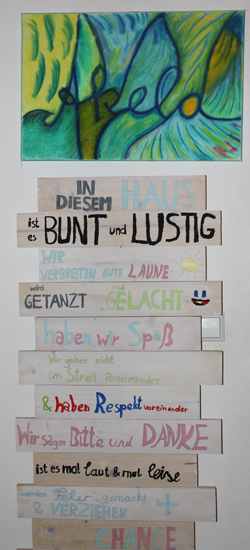 IN
DIESEM HAUS
ist es BUNT und LUSTIG
WIR
VERBREITEN GUTE LAUNE
wird
GETANZT GELACHT
haben wir Spaß
Wir gehen nicht
im Streit auseinander
& haben Respekt voreinander
Wir sagen Bitte und DANKE
ist es mal laut & mal leise
werden Feler gemacht
& VERZIEHEN
CHANCE